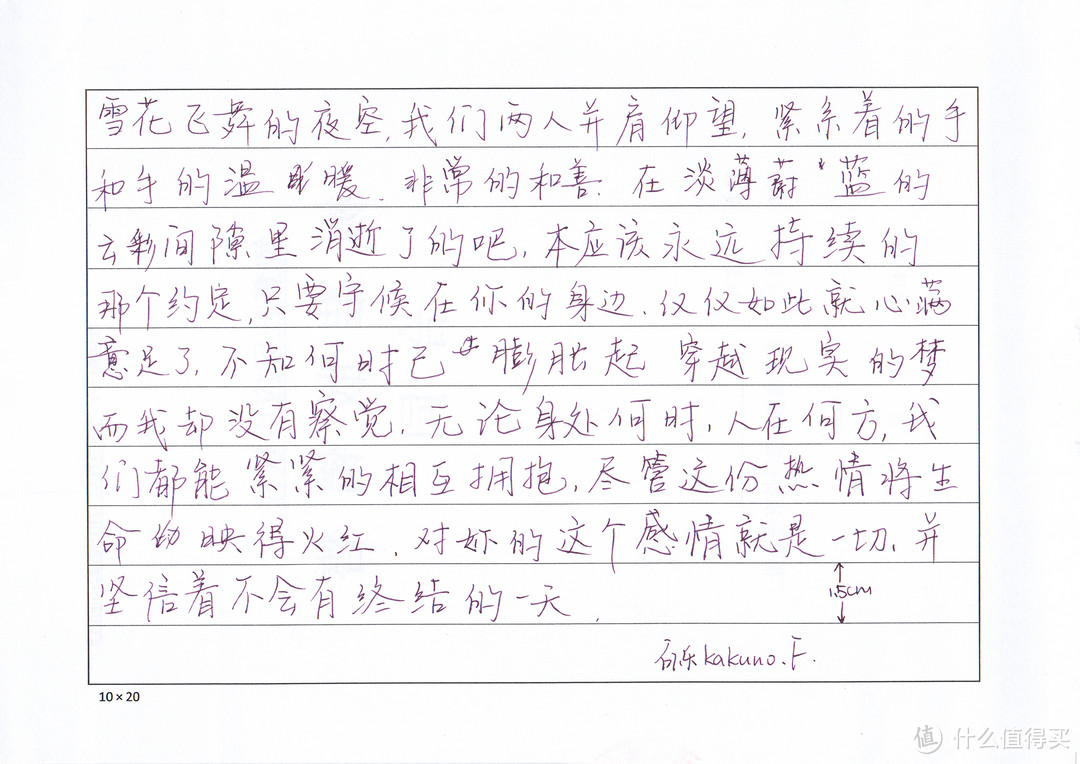 雪花飞舞的夜空,我们两人并肩仰望,紧系着的手
和手的温暖.非常的和善.在淡薄蔚蓝的
云彩间隙里消逝了的吧,本应该永远持续的
那个约定,只要守候在你的身边.仅仅如此就心满
意足了,不知何时已膨胀起 穿越现实的梦
而我却没有察觉,无论身处何时,人在何方,我
们都能紧紧的相互拥抱,尽管这份热情将生
命映得火红.对妳的这个感情就是一切,并
坚信着不会有终结的一天.
1.5cm
kakuno.F.
10×20
值 什么值得买